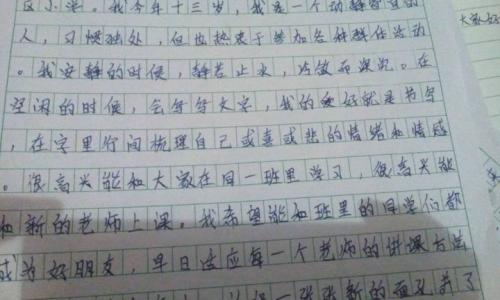 区小学。我今年十三岁,我是一个动静皆宜的
人,习惯独处,但也热衷于参加各种集体活动
。我安静的时候,静若止水,沉敛而深沉。在
空闲的时候,会写写文字,我的爱好就是书写
,在字里行间梳理自己或喜或悲的情绪和情感
。很高兴能和大家在同一班里学习,很高兴能
和新的老师上课。我希望能和班里的同学们都
成为好朋友,早日适应每一个老师的讲课方法
张张新的面孔
大家好